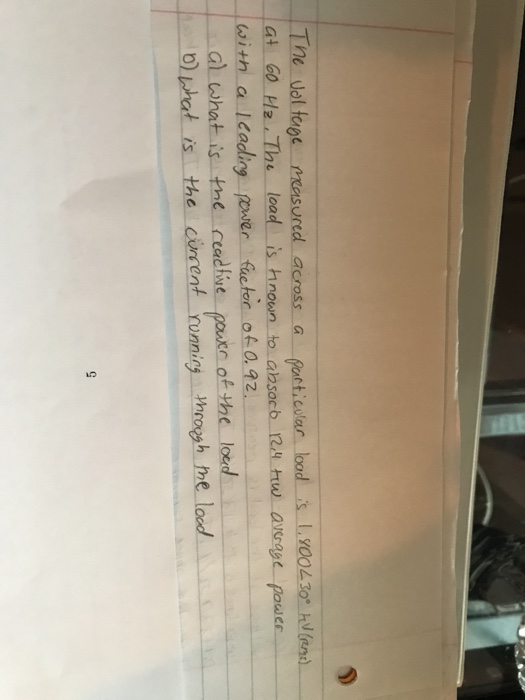 The voltage measured across a particular load is 1.400∠30° kV(rms)
at 60 Hz. The load is known to absorb 12.4 kW average power
with a leading power factor of 0.92.
a) what is the reactive power of the load
b) what is the current running through the load
5